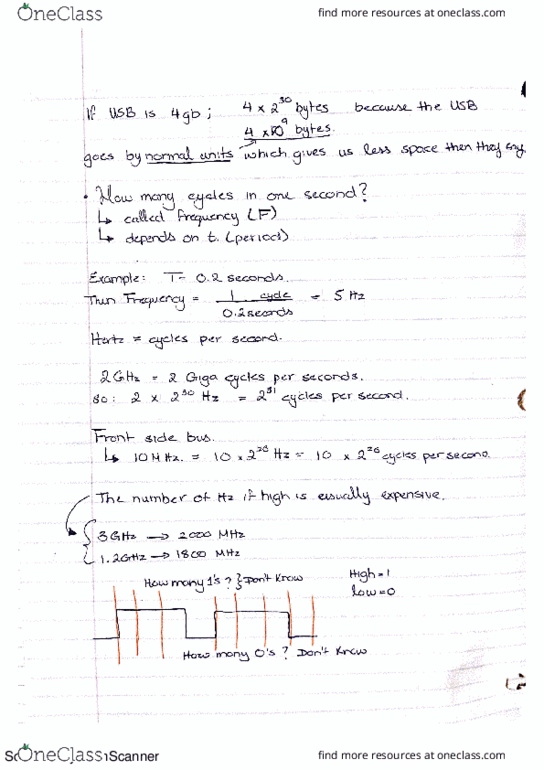 OneClass
find more resources at oneclass.com
If USB is 4gb ; 4 x 2^30 bytes because the USB
4 x10^9 bytes.
goes by normal units which gives us less space then they say
• How many cycles in one second?
↳ called frequency (F)
↳ depends on t. (period)
Example: T= 0.2 seconds.
Then Frequency = 1 cycle / 0.2 seconds = 5 Hz
Hertz = cycles per second.
2 GHz = 2 Giga cycles per seconds.
so: 2 x 2^30 Hz = 2^31 cycles per second.
Front side bus.
↳ 10 MHz. = 10 x 2^20 Hz = 10 x 2^20 cycles per second.
The number of Hz if high is usually expensive.
3 GHz → 2000 MHz
1.2 GHz → 1800 MHz
How many 1's ? } Don't Know
High = 1
low = 0
How many 0's ? Don't Know
OneClass
Scanner
find more resources at oneclass.com